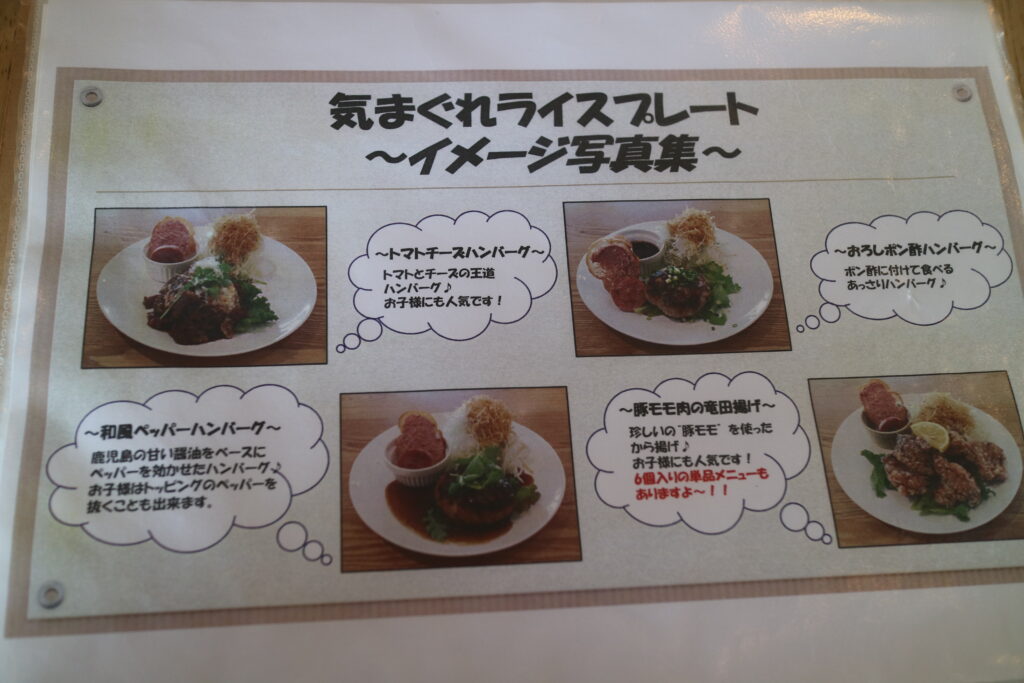 気まぐれライスプレート
～イメージ写真集～
～トマトチーズハンバーグ～
トマトとチーズの王道
ハンバーグ♪
お子様にも人気です！
～おろしポン酢ハンバーグ～
ポン酢に付けて食べる
あっさりハンバーグ♪
～和風ペッパーハンバーグ～
鹿児島の甘い醤油をベースに
ペッパーを効かせたハンバーグ♪
お子様はトッピングのペッパーを
抜くことも出来ます。
～豚モモ肉の竜田揚げ～
珍しいの"豚モモ"を使った
から揚げ♪
お子様にも人気です！
6個入りの単品メニューも
ありますよ～！！